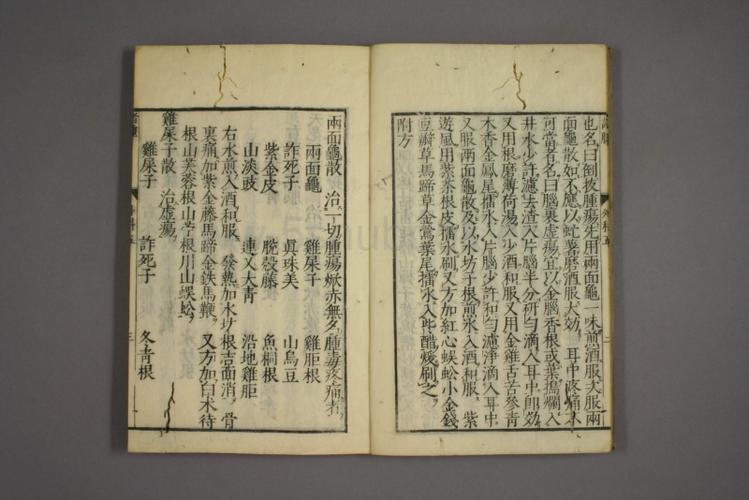 也名曰倒拔腫瘍先用兩面龜一味煎酒服次服兩
面龜散如不應以蛇蓍磨酒服大効 耳中疼痛不
可當者名曰腦裏虛瘍宜以金腦香根或葉搗爛入
井水少許濾去渣入片腦半分研勻滴入耳中即効
又用根磨薄荷湯入少酒和服又用金雞舌苦參青
木香金鳳尾擂水入片腦少許和勻濾淨滴入耳中
又服兩面龜散及以水坊子根煎水入酒和服 紫
遊風用紫茶根皮擂水刷又方加紅心蜈蚣小金錢
豆瓣草馬蹄草金鶯葉尾擂水入些醋後刷之
附方
兩面龜散 治一切腫瘍焮赤無名腫毒疼痛者
兩面龜 雞屎子 雞胵根
詐死子 眞珠美 山烏豆
紫金皮 脫殼藤 魚桐根
山淡豉 連乂大青 沿地雞胵
右水煎入酒和服 發熱加水坊根吉面消 骨
裏痛加紫金藤馬蹄金鉄馬鞭 又方加白木待
根山芙蓉根山苧根川山蜈蚣
雞屎子散 治虛瘍
雞屎子 詐死子 冬青根
三